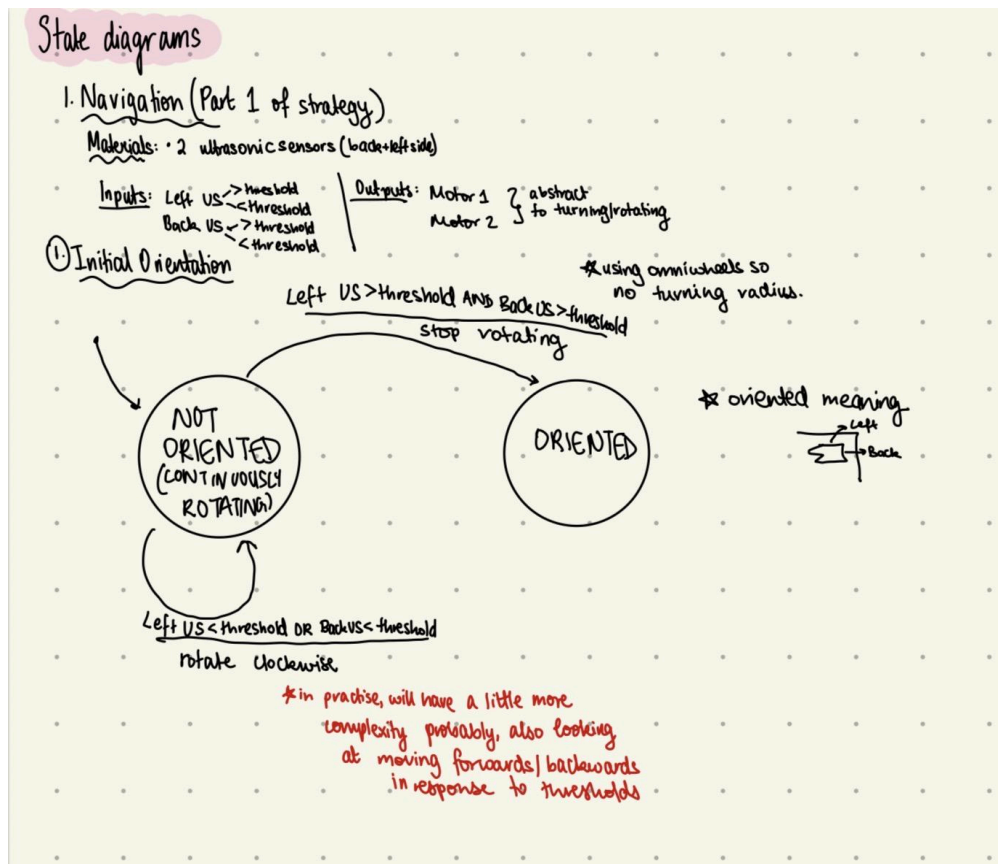 State diagrams
1. Navigation (Part 1 of strategy)
Materials: • 2 ultrasonic sensors (back+left side)
Inputs: Left US > threshold
< threshold
Back US > threshold
< threshold
Outputs: Motor 1
Motor 2
} abstract
to turning/rotating
1. Initial Orientation
* using omniwheels so
no turning radius.
Left US > threshold AND Back US > threshold
stop rotating
NOT
ORIENTED
(CONTINUOUSLY
ROTATING)
ORIENTED
* oriented meaning
Left
Back
Left US < threshold OR Back US < threshold
rotate clockwise
* in practise, will have a little more
complexity probably, also looking
at moving forwards/backwards
in response to thresholds